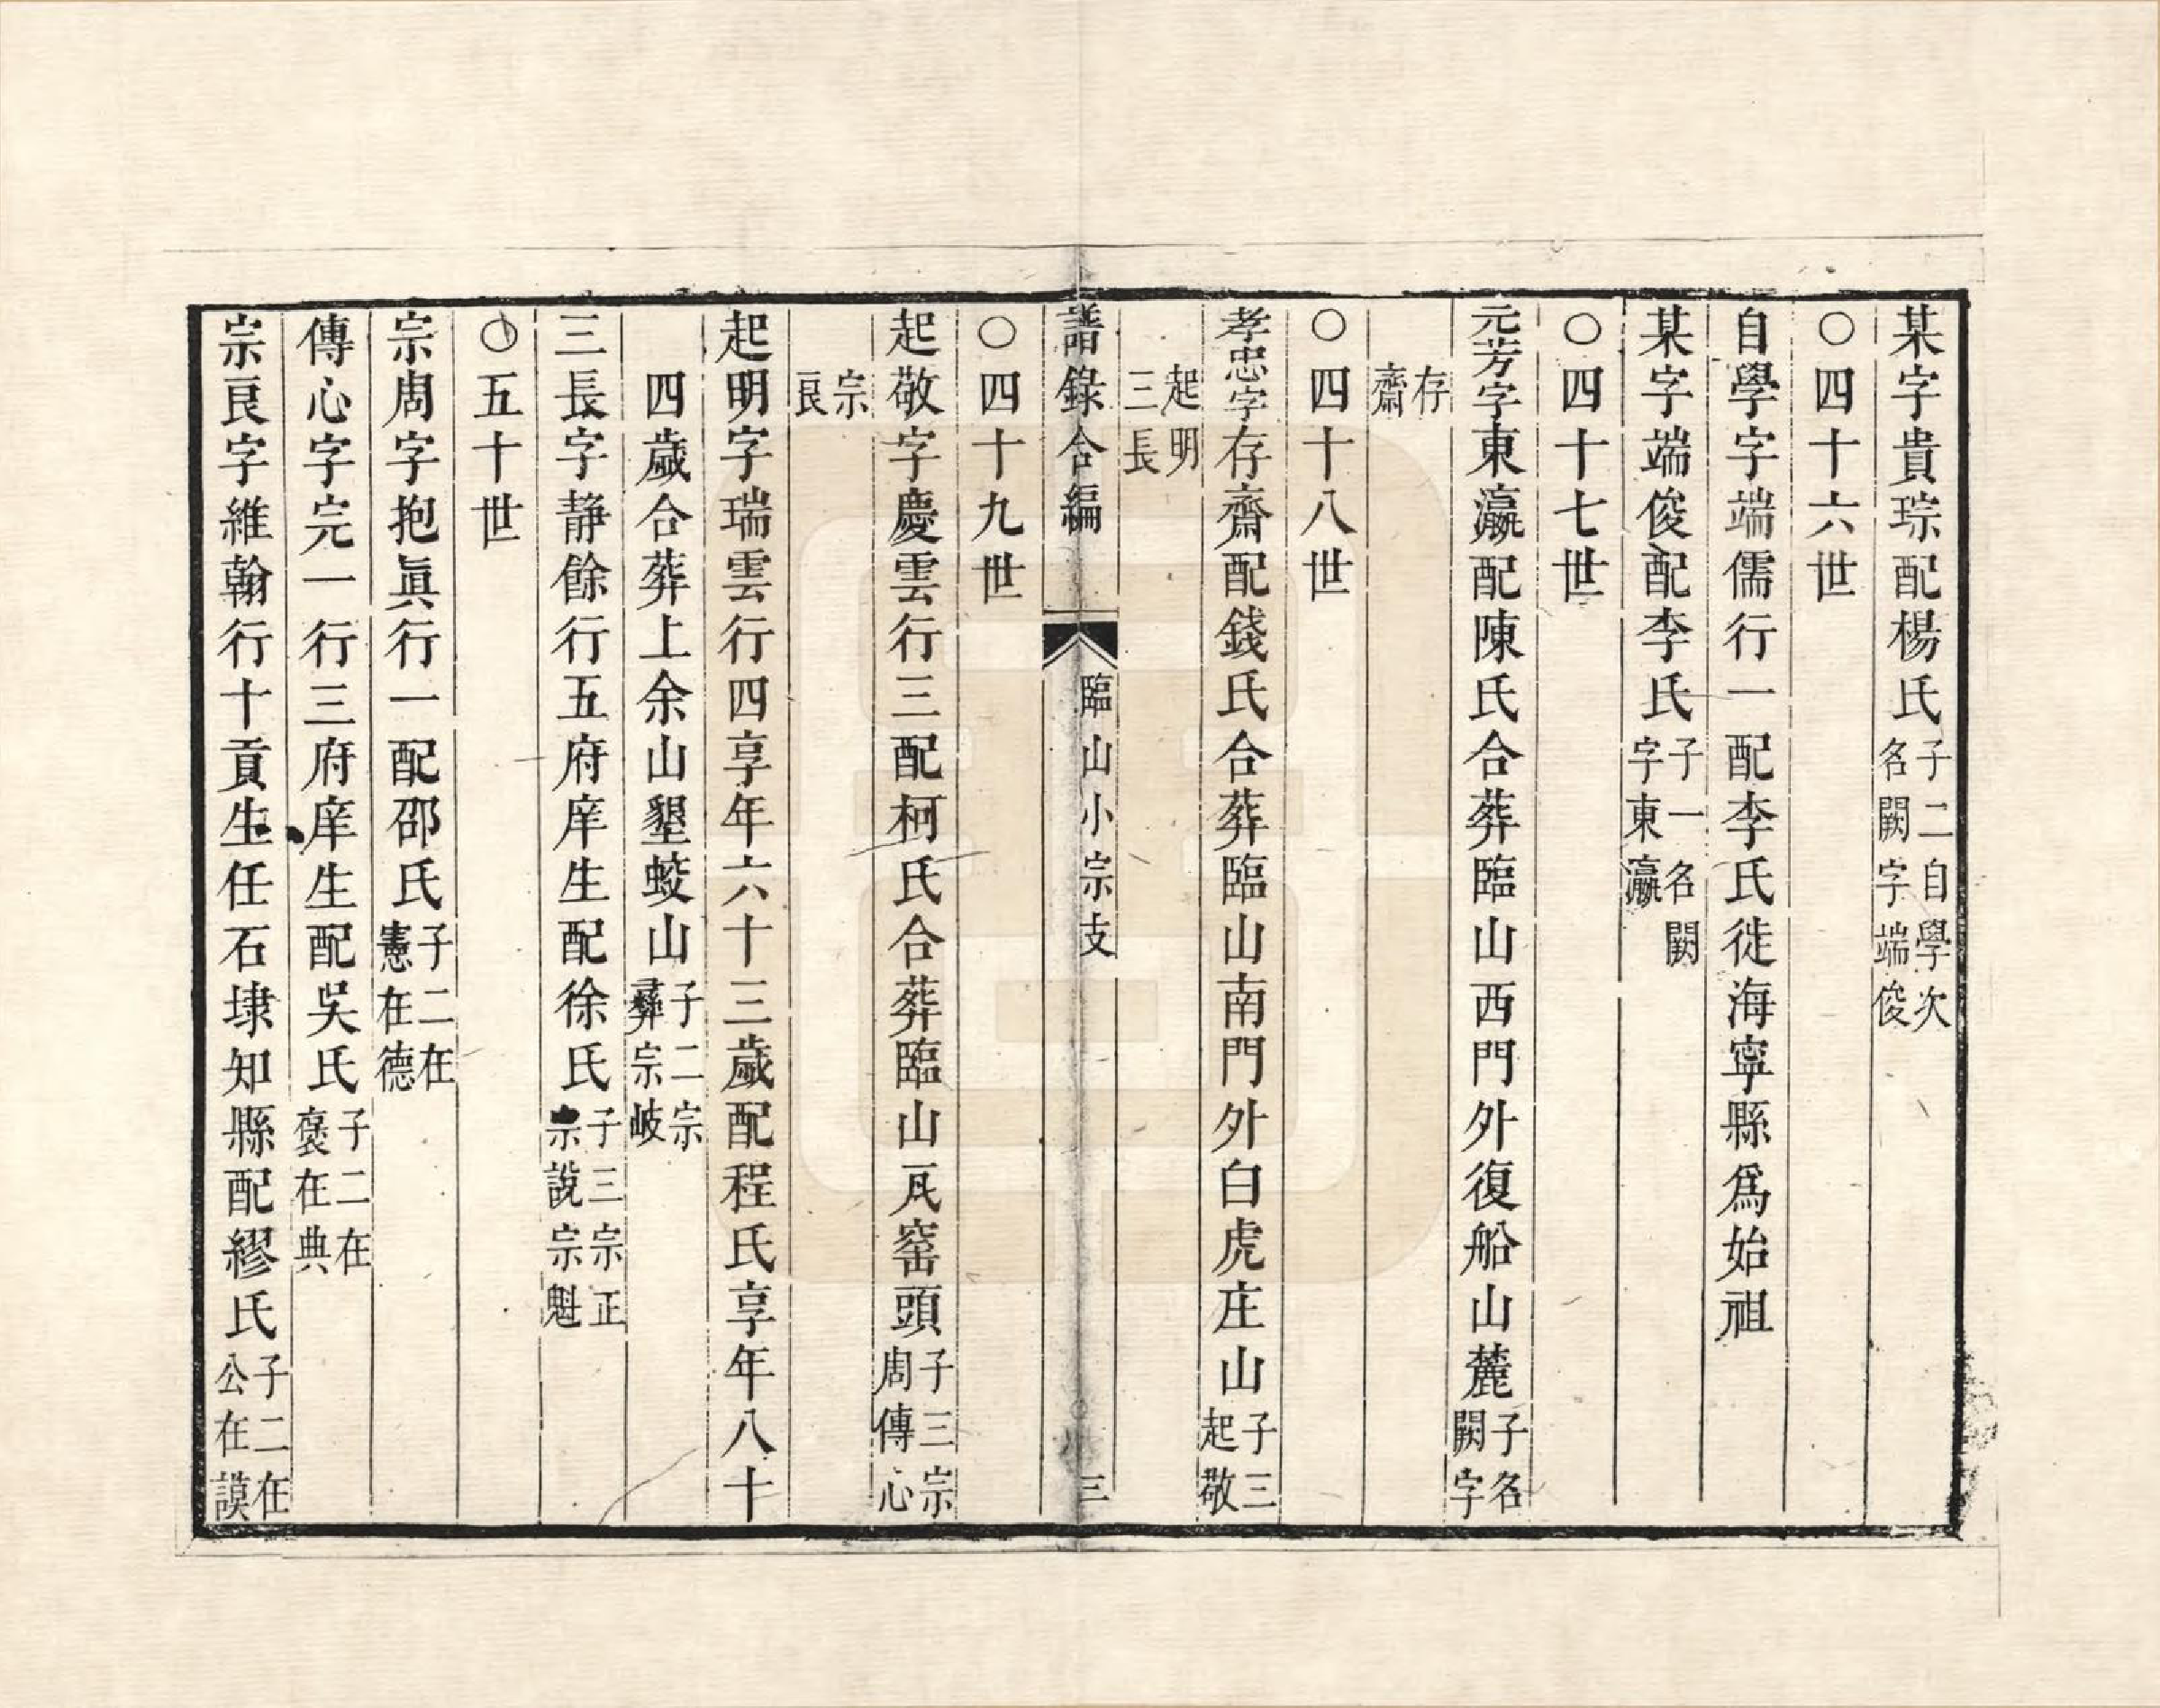 某字貴琮配楊氏子二自學次名闕字端俊
○四十六世
自學字端儒行一配李氏徙海寧縣爲始祖
某字端俊配李氏子一名闕字東瀛
○四十七世
元芳字東瀛配陳氏合葬臨山西門外復船山麓子名闕字
存齋
○四十八世
孝忠字存齋配錢氏合葬臨山南門外白虎庄山子三起敬
起明三長
譜錄合編 臨山小宗支 三
○四十九世
起敬字慶雲行三配柯氏合葬臨山瓦窑頭子三宗周傳心
宗良
起明字瑞雲行四享年六十三歲配程氏享年八十
四歲合葬上余山墾蛟山子二宗彝宗岐
三長字靜餘行五府庠生配徐氏子三宗正宗說宗魁
○五十世
宗周字抱眞行一配邵氏子二在憲在德
傳心字完一行三府庠生配吳氏子二在褒在典
宗良字維翰行十貢生任石埭知縣配繆氏子二在公在謨